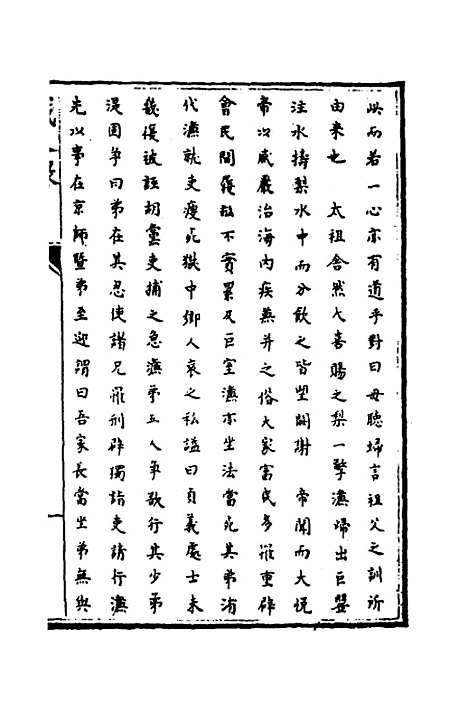 此而若一心亦有道乎對曰毋聽婦言祖父之訓所
由来也　太祖含然大喜賜之梨一擎濂歸出巨罌
注水擣梨水中而分飲之皆望闕謝　帝聞而大悦
帝以威嚴治海内疾兼并之俗大家富民多罹重辟
會民間覆不實累及巨室濂亦坐法當死其弟洧
代濂就吏瘐死獄中鄉人哀之私謚曰貞義處士未
幾復被誣胡黨吏捕之急濂弟五人爭欲行其少弟
湜固爭曰弟在其忍使諸兄罹刑辟獨詣吏請行濂
先以事在京師暨弟至迎謂曰吾家長當坐弟無與